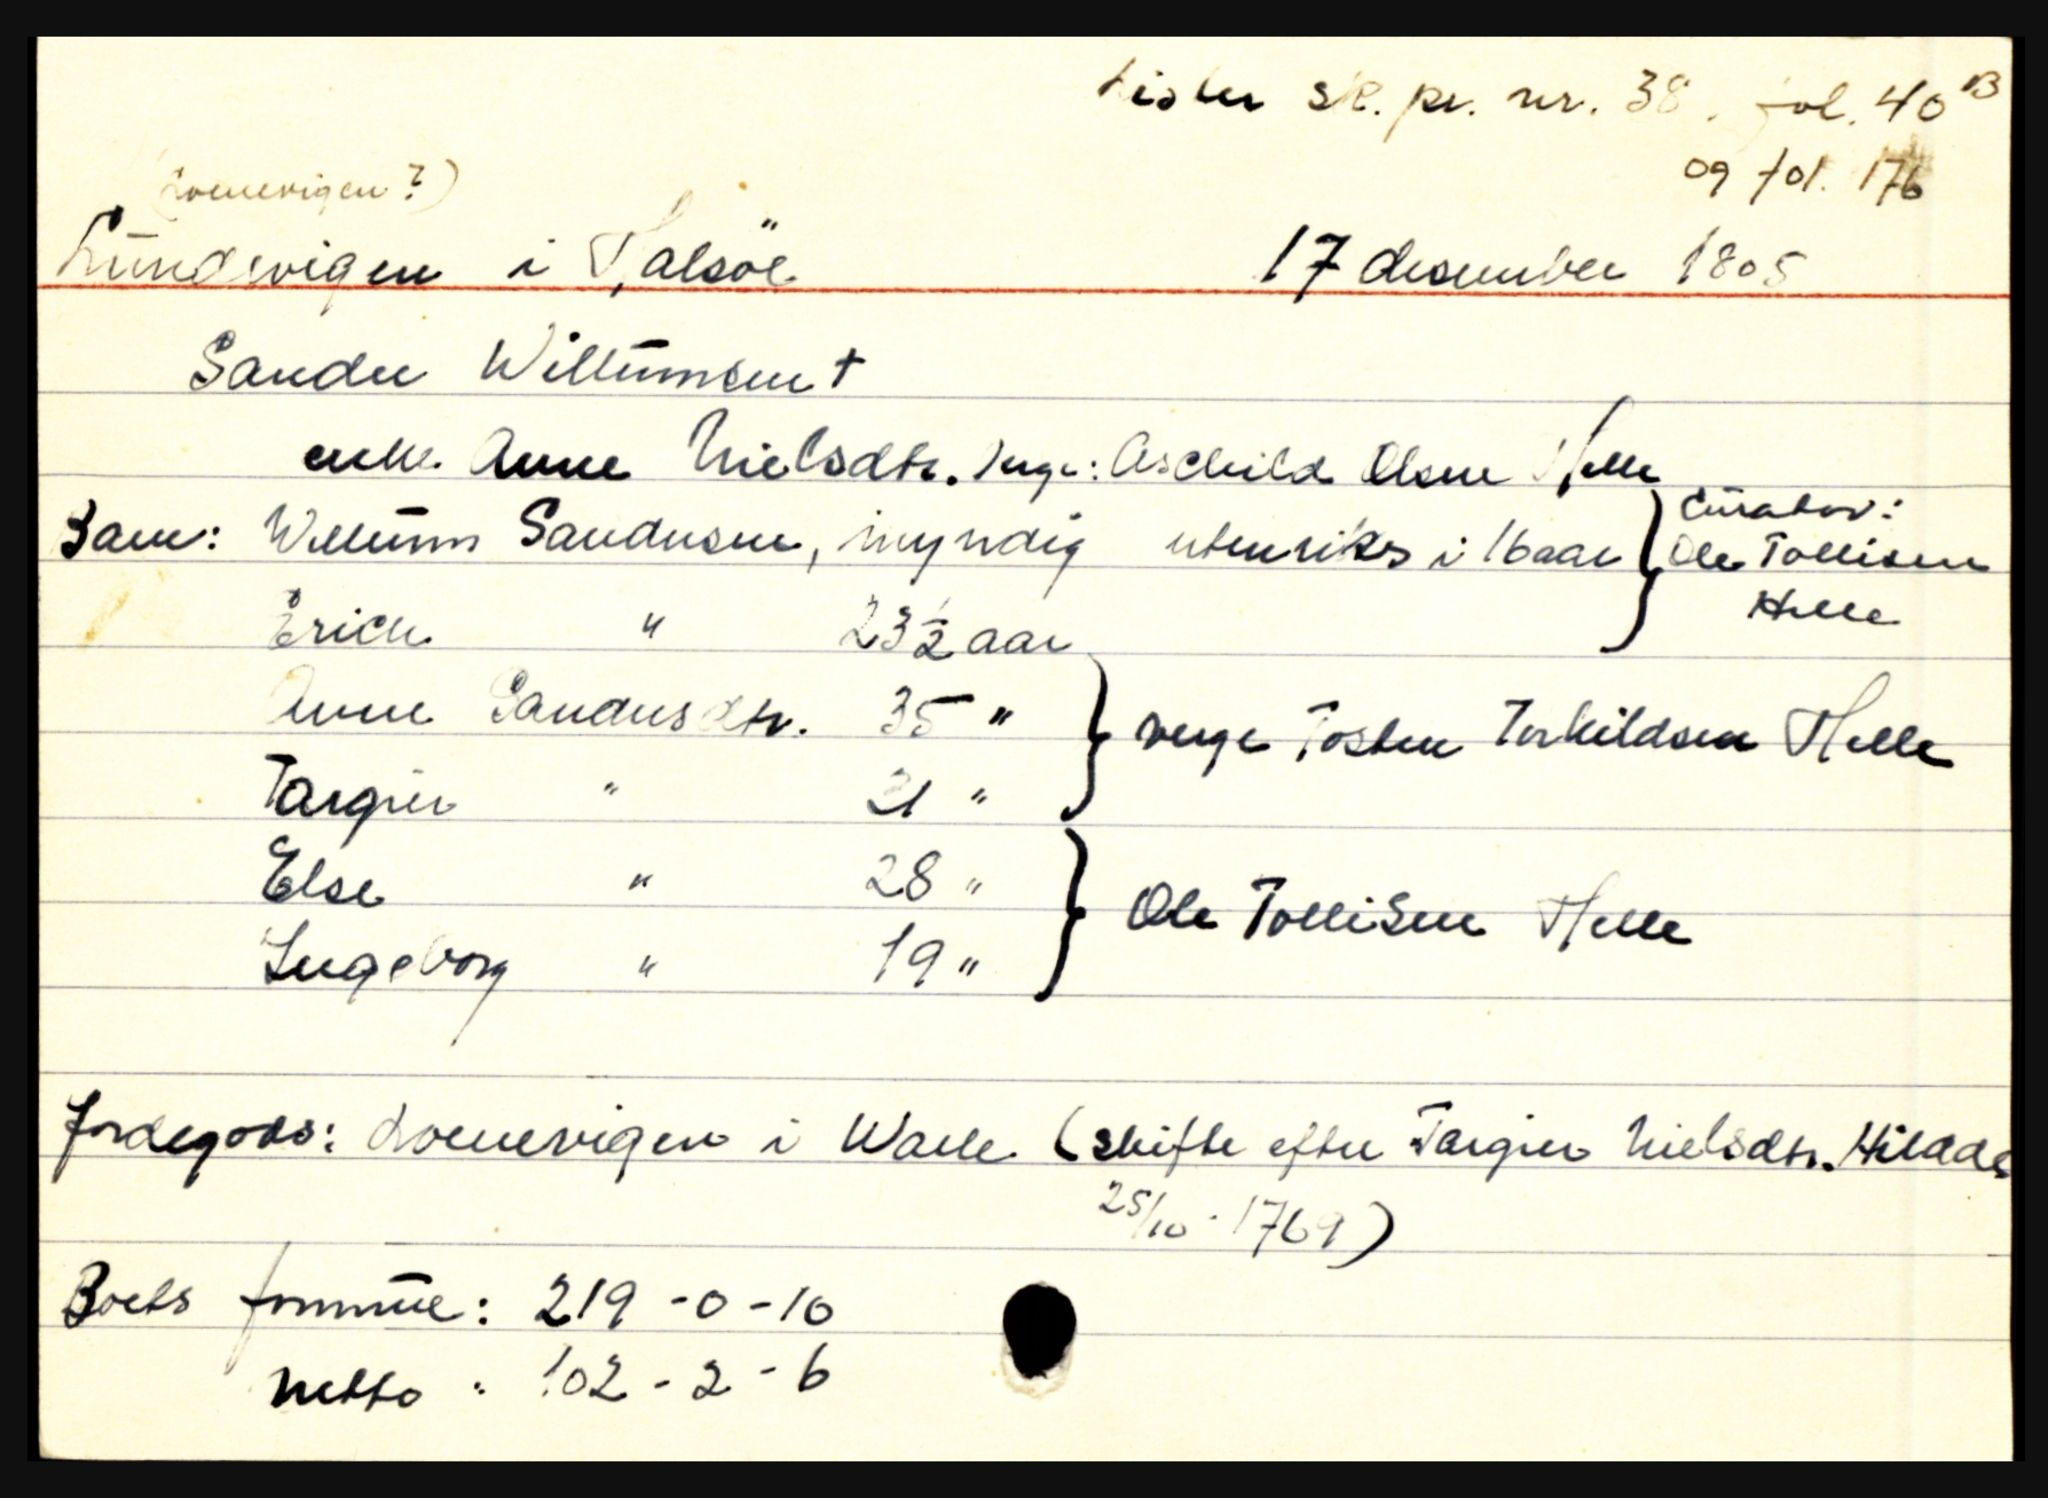 Lister sk. pr. nr. 38. fol. 40 B
og fol. 176
(Loenevigen?)
Lundevigen i Halsöe 17 desember 1805
Sander Willumsen †
enke Anne Nielsdtr. verge: Aschild Olsen Helle
Barn: Willum Sandersen, myndig utenriks i 16 aar } Curator:
Ole Tollisen
Helle
Erich " 23 1/2 aar
Anne Sandersdtr. 35 " } verge Tosten Terkildsen Helle
Targier " 21 "
Else " 28 " } Ole Tollisen Helle
Ingeborg " 19 "
Jordegods: Loenevigen i Walle (skifte efter Targier Nielsdtr. Hildal
25/10 - 1769)
Boets formue: 219 - 0 - 10
netto " 102 - 2 - 6